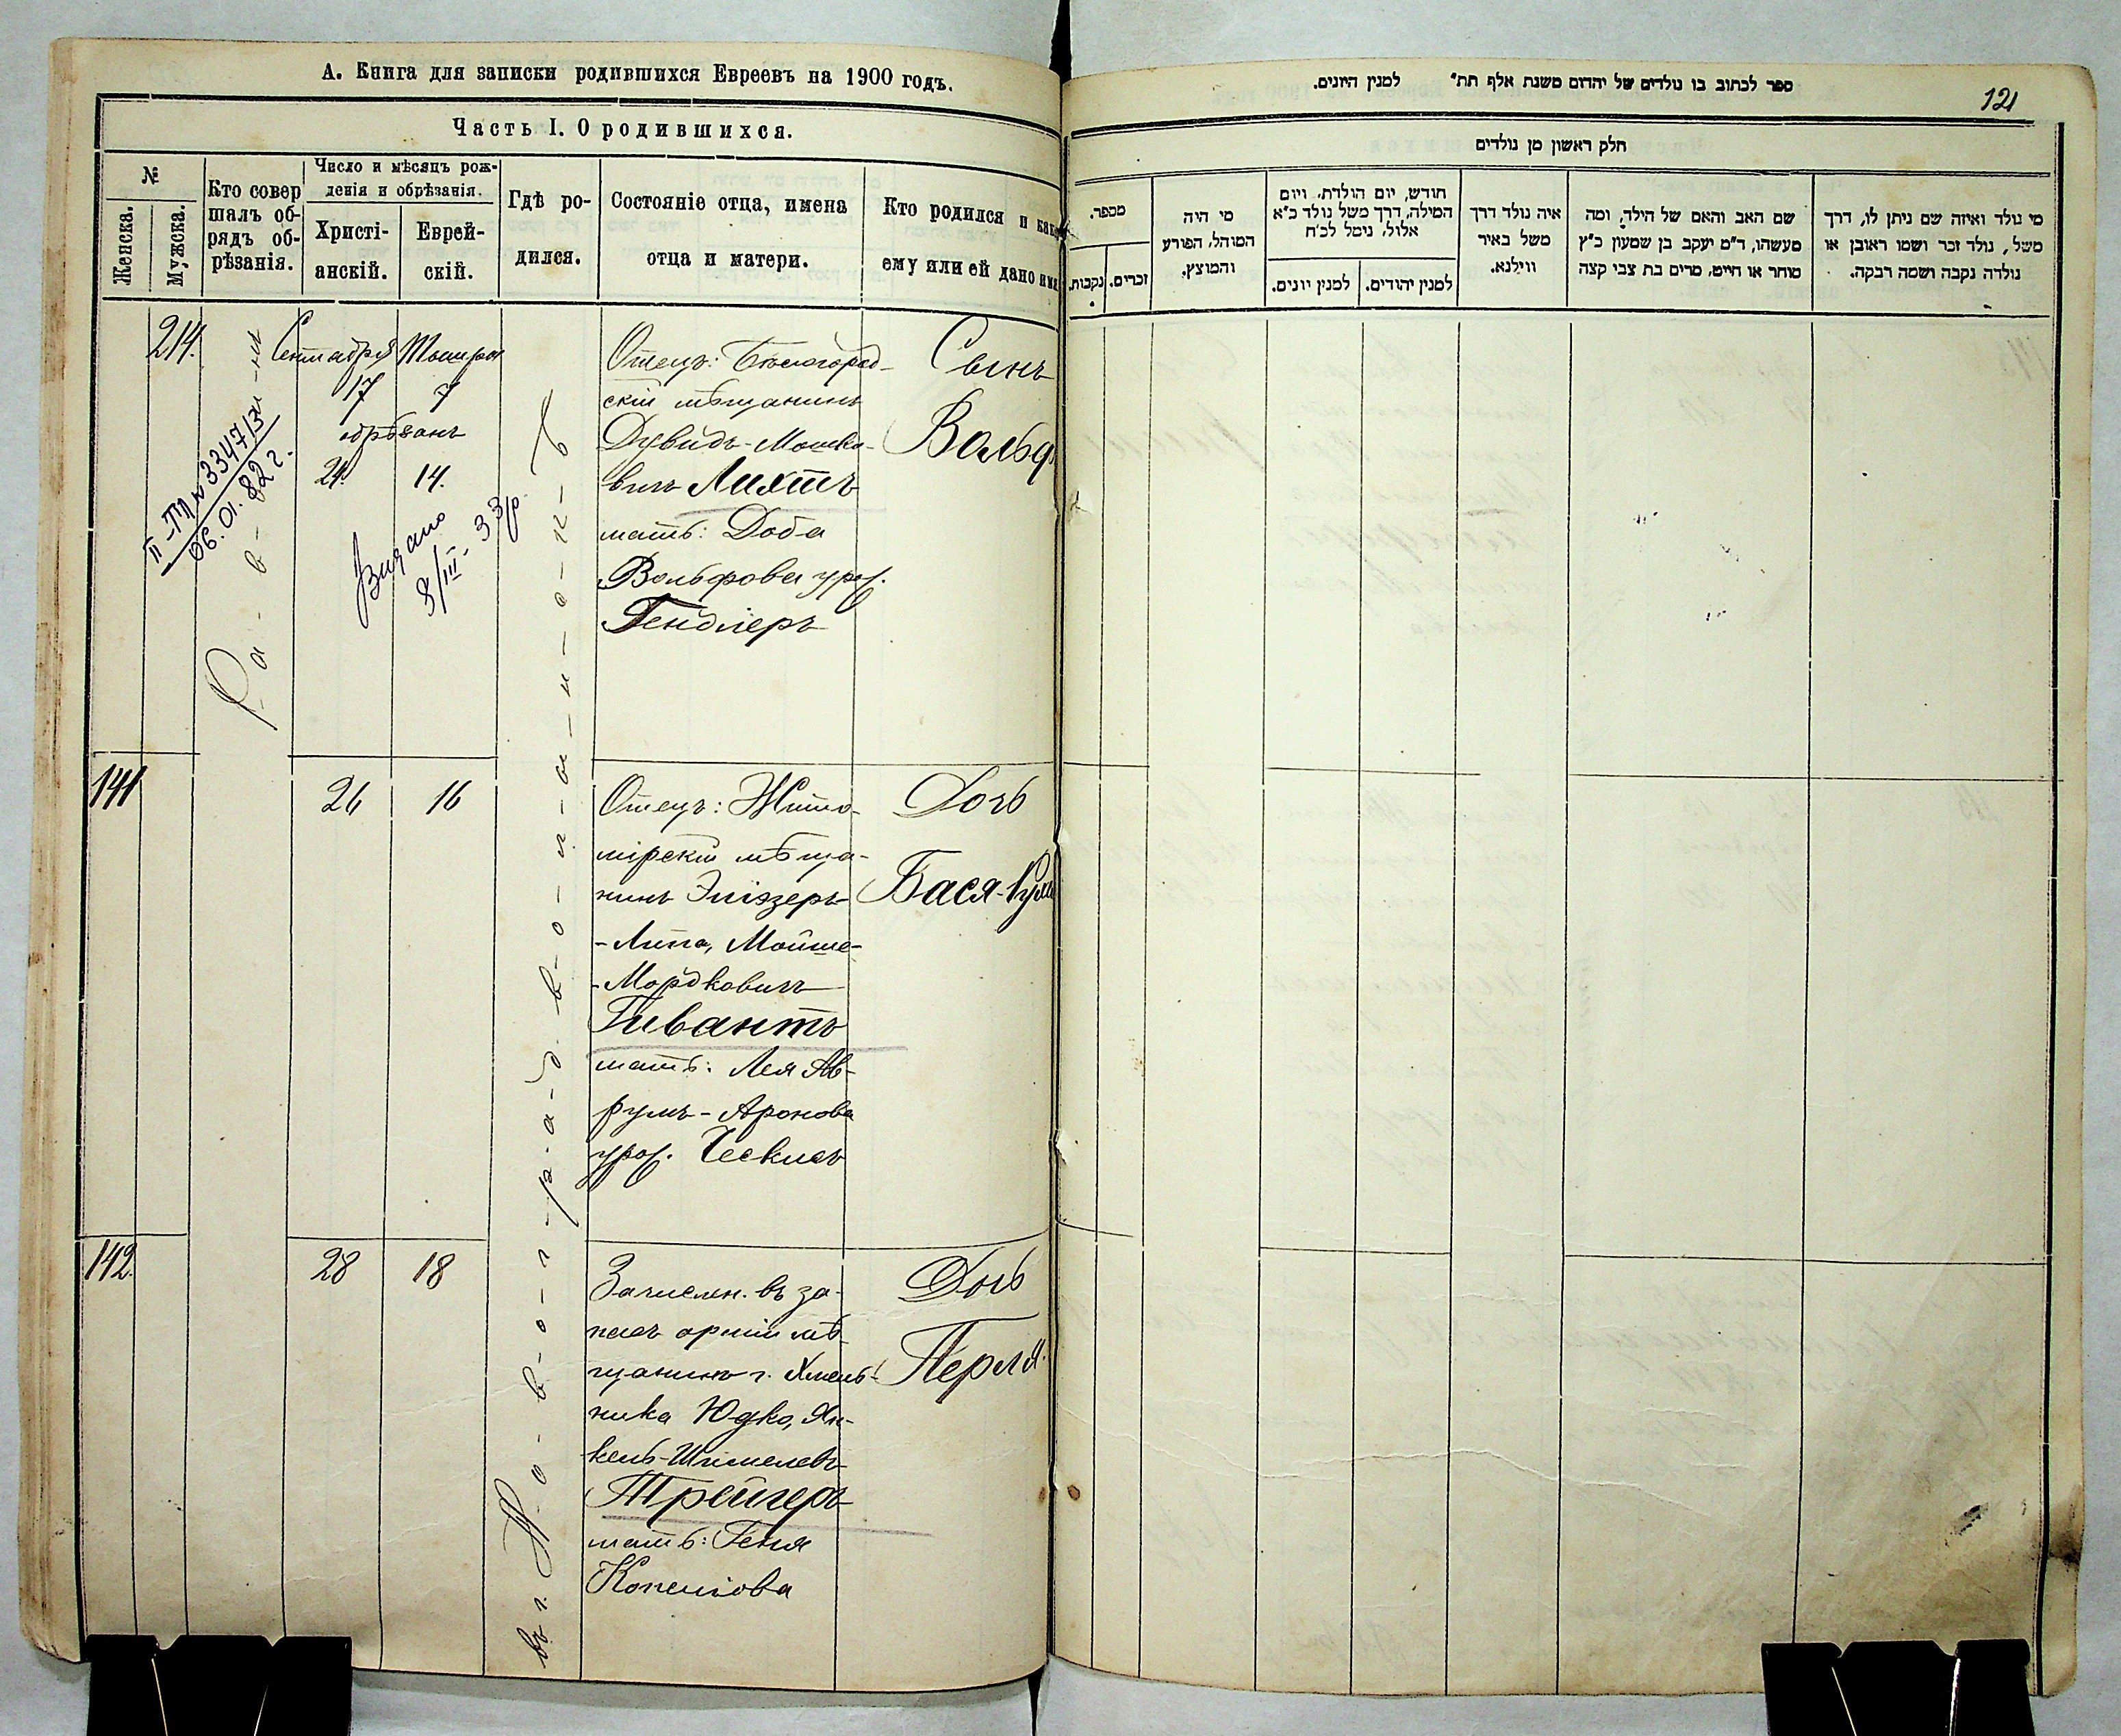 А. Книга для записки родившихся Евреевъ на 1900 годъ.
Часть I. О родившихся.
№
Женска.
Мужска.
Кто совер
шалъ об-
рядъ об-
рѣзанія.
Число и мѣсяцъ рож-
денія и обрѣзанія.
Христі-
анскій.
Еврей-
скій.
Гдѣ ро-
дился.
Состояніе отца, имена
отца и матери.
Кто родился и како
ему или ей дано имя
214.
Сентября Тишри
17 7
обрѣзанъ
24. 14.
Ра-в-и-н
II-ТП № 334713
06.01.82 г.
Выдано
8/III-33р.
въ г. Н-о-в-о-г-р-а-д-в-о-л-ы-н-с-к-ѣ
Отецъ: Бѣлогород-
скій мѣщанинъ
Дувидъ-Мошко-
вичъ Лихтъ
мать: Доба
Вольфова урож.
Гендлеръ
Сынъ
Вольф
141
26 16
Отецъ: Жито-
мірскій мѣща-
нинъ Эліэзеръ-
-Липа, Мойше-
-Мордковичъ
Гивантъ
мать: Лея Ав-
румъ-Аронова
урож. Ческисъ
Дочь
Бася-
142.
28 18
Зачислен. въ за-
пасъ арміи мѣ-
щанинъ г. Хмель-
ника Юдко, Ян-
кель-Шмилевъ
Трейгеръ
мать: Геня
Копелюва
Дочь
Перля.
ספר לכתוב בו נולדים של יהדום משנת אלף תת״ למנין היונים.
121
חלק ראשון מן נולדים
מספר.
נקבות.
זכרים.
מי היה
המוהל, הפורע
והמוצץ.
חודש, יום הולדת, ויום
המילה, דרך משל נולד כ״א
אלול, נימל לכ״ח
למנין יונים.
למנין יהודים.
איה נולד דרך
משל באיר
ווילנא.
שם האב והאם של הילד, ומה
מעשהו, ד״מ יעקב בן שמעון כ״ץ
סוחר או חייט, מרים בת צבי קצה
מי נולד ואיזה שם ניתן לו, דרך
משל, נולד זכר ושמו ראובן או
נולדה נקבה ושמה רבקה.